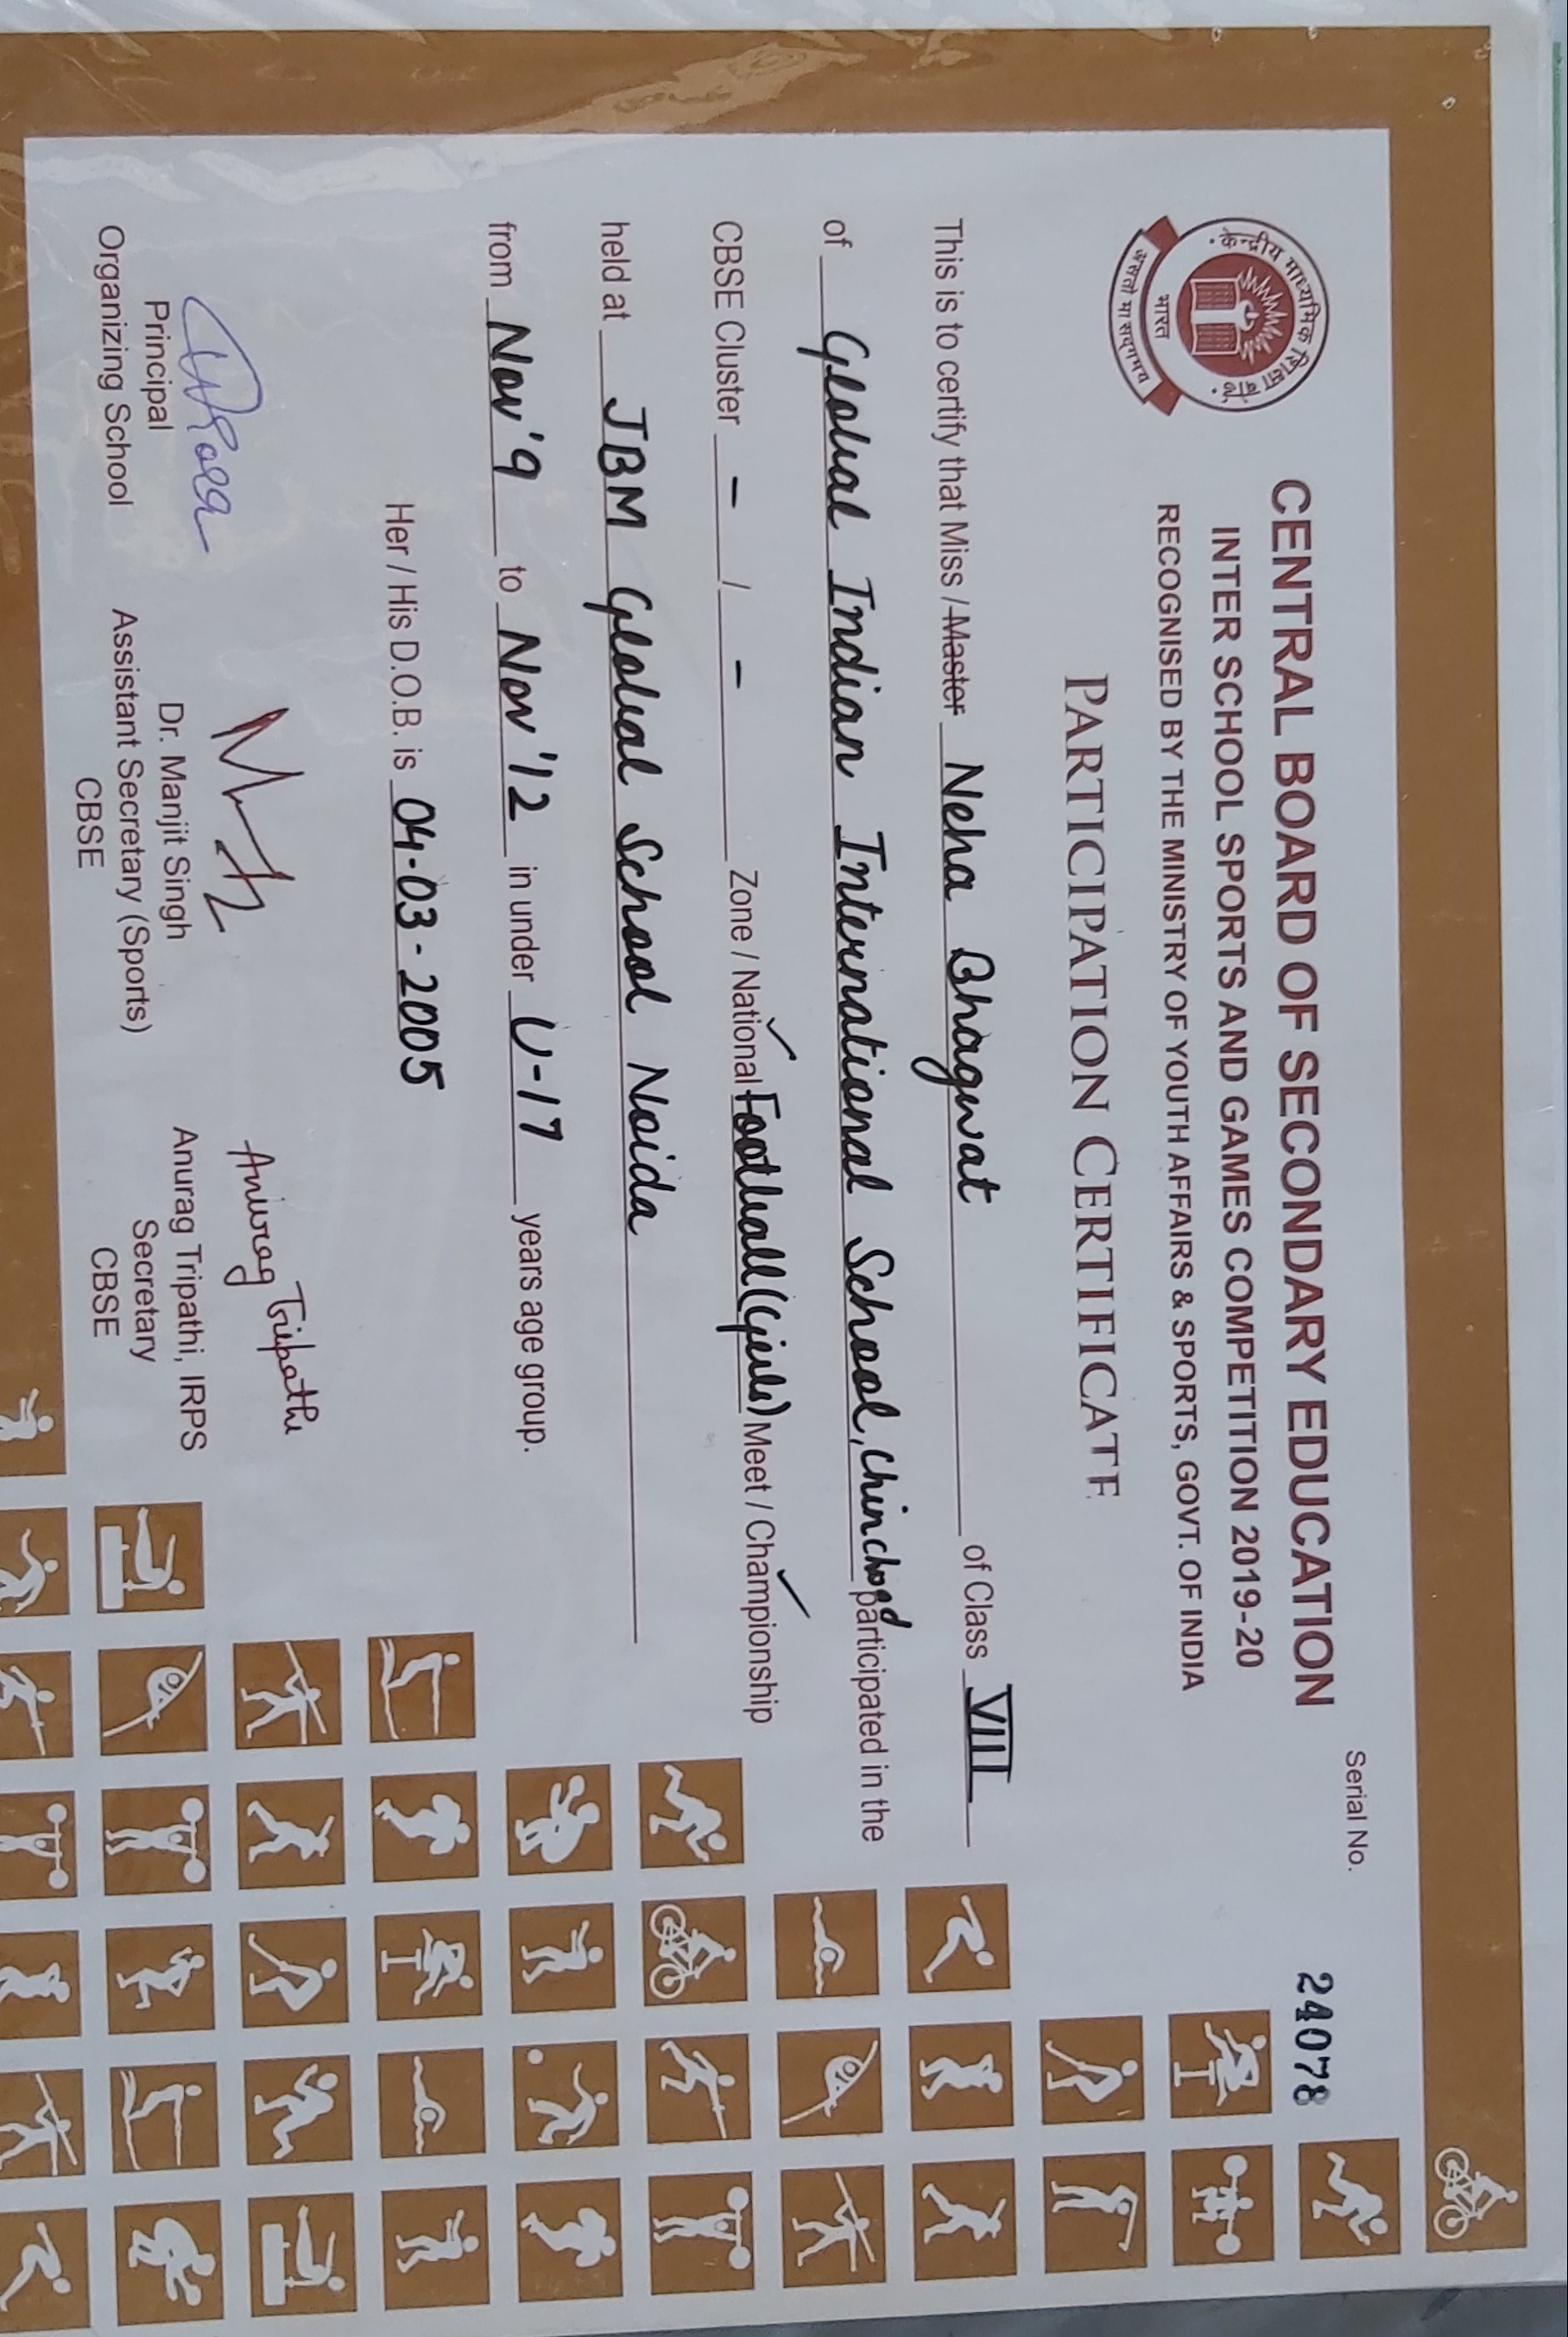 Serial No. 24078
केन्द्रीय माध्यमिक शिक्षा बोर्ड
भारत
असतो मा सद्गमय
CENTRAL BOARD OF SECONDARY EDUCATION
INTER SCHOOL SPORTS AND GAMES COMPETITION 2019-20
RECOGNISED BY THE MINISTRY OF YOUTH AFFAIRS & SPORTS, GOVT. OF INDIA
PARTICIPATION CERTIFICATE
This is to certify that Miss / Master Neha Bhagwat of Class VIII
of Global Indian International School, Chinchwad participated in the
CBSE Cluster - / - Zone / National Football (Girls) Meet / Championship
held at JBM Global School Noida
from Nov'9 to Nov'12 in under U-17 years age group.
Her / His D.O.B. is 04-03-2005
Anurag Tripathi
Principal
Organizing School
Dr. Manjit Singh
Assistant Secretary (Sports)
CBSE
Anurag Tripathi, IRPS
Secretary
CBSE